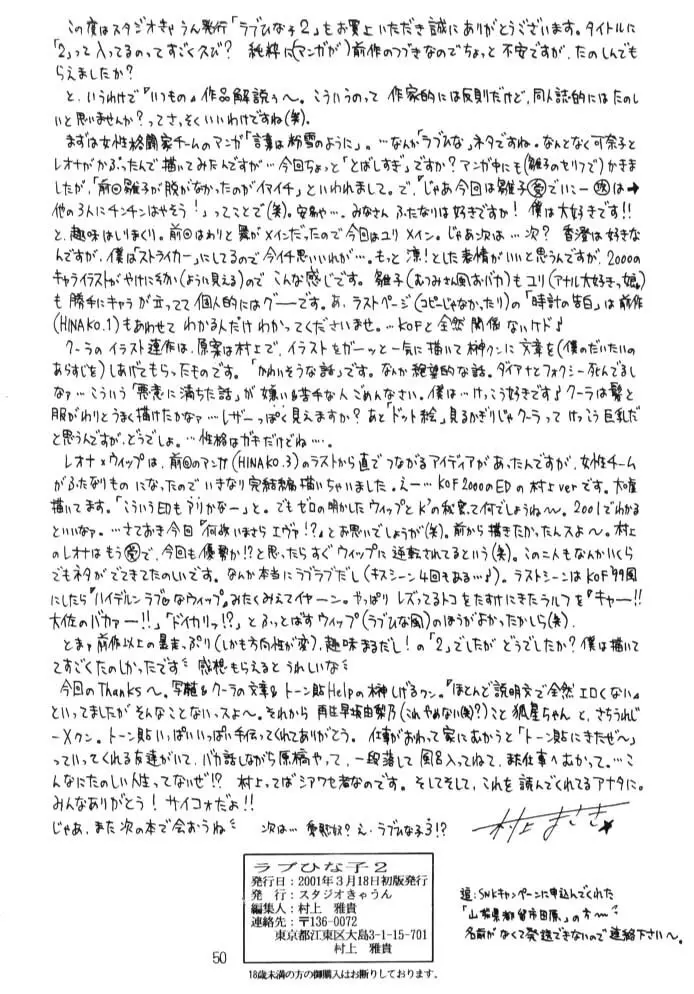 この度はスタジオきゃうん発行「ラブひな子2」をお買上いただき誠にありがとうございます。タイトルに
「2」って入ってるのってすごく久び? 純粋に(マンガが)前作のつづきなのでちょっと不安ですが、たのしんでも
らえましたか?
と、いうわけで『いつもの』作品解説ぅ〜。こういうのって作家的には反則だけど、同人誌的にはたのし
いと思いませんか?ってさっそくいいわけですね(笑)。
まずは女性格闘家チームのマンガ「言葉は粉雪のように」。…なんか「ラブひな」ネタですね。なんとなく可奈子と
レオナがかぶったんで描いてみたんですが…今回ちょっと「とばしすぎ」ですか?マンガ中にも(雛子のセリフで)かきま
したが、「前回雛子が脱がなかったのがイマイチ」といわれまして。で、「じゃあ今回は雛子
他の3人にチンチンはやそう!」ってことで(笑)。安易や…。みなさんふたなりは好きですか!僕は大好きです!!
と、趣味はしりまくり。前回はわりと舞がメインだったので今回はユリメイン。じゃあ次は…次? 香澄は好きな
んですが、僕は「ストライカー」にしてるので今イチ思いいれが…。もっと「凛!とした表情がいいと思うんですが、2000の
キャライラストがやけに幼か(ように見える)のでこんな感じです。雛子(むつみさん風おバカ)もユリ(アナル大好きっ娘)
も勝手にキャラが立ってて個人的にはグーです。あ、ラストページ(コピーじゃなかったり)の「時計の告白」は前作
(HINAKO.1)もあわせてわかる人だけわかってくださいませ。…KOFと全然関係ないケド♪
クーラのイラスト連作は、原案は村上で、イラストをガーッと一気に描いて榊クンに文章を(僕のだいたいの
あらすじを)しあげてもらったものです。「かわいそうな話」です。なんか絶望的な話。ダイアナとフォクシー死んでるし
なァ…こういう「悪意に満ちた話」が嫌い&苦手な人ごめんなさい。僕は…けっこう好きです♪クーラは髪と
服がわりとうまく描けたかなァ…レザーっぽく見えますか?あと「ドット絵」見るかぎりじゃクーラってけっこう巨乳だ
と思うんですが、どうでしょ。…性格はガキだけどね…。
レオナ×ウィップは、前回のマンガ(HINAKO.3)のラストから直でつながるアイディアがあったんですが、女性チーム
がふたなりものになったのでいきなり完結編描いちゃいました。えー…KOF2000のEDの村上verです。大嘘
描いてます。「こういうEDもアリかなー」と。でもゼロの明かしたウィップとK'の秘密って何でしょうね〜。2001でわかる
といいなァ。…さておき今回『何故いまさらエヴァ!?』とお思いでしょうが(笑)。前から描きたかったんスよ〜。村上
のレオナはもう で、今回も優勢か!?と思ったらすぐウィップに逆転されてるという(笑)。この二人もなんかいくら
でもネタがでてきてたのしいです。なんか本当にラブラブだし(キスシーン4回もある…♪)。ラストシーンはKOF99風
にしたら『ハイデルンラブ♡なウィップ』みたくみえてイヤーン。やっぱりレズってるトコをたすけにきたラルフを『キャー!!
大佐のバカァー!!』「ドイカリッ!?」とふっとばすウィップ(ラブひな風)のほうがよかったかしら(笑)。
とまァ前作以上の暴走っぷり(しかも方向性が変)、趣味まるだし!の「2」でしたがどうでしたか?僕は描いて
てすごくたのしかったです 感想もらえるとうれしいな
今回のThanks〜。写植&クーラの文章&トーン貼Helpの榊しげるクン。『ほとんど説明文で全然エロくない』
といってましたがそんなことないっスよ〜。それから再生早坂由梨乃(これやめない(笑)?)こと狐星ちゃんと、さちうれじ
ーXクン。トーン貼いっぱいいっぱい手伝ってくれてありがとう。仕事がおわって家にむかうと「トーン貼にきたぜ〜」
っていってくれる友達がいて、バカ話しながら原稿やって、一段落して風呂入ってねて、また仕事へむかって。…こ
んなにたのしい人生ってないぜ!? 村上ってばシアワセ者なのです。そしてそして、これを読んでくれてるアナタに。
みんなありがとう!サイコォだよ!!
じゃあ、また次の本で会おうね 次は… え、ラブひな子3!?
村上まさき
ラブひな子2
発行日：2001年3月18日初版発行
発 行：スタジオきゃうん
編集人：村上 雅貴
連絡先：〒136-0072
東京都江東区大島3-1-15-701
村上 雅貴
18歳未満の方の御購入はお断りしております。
追：SNKキャンペーンに申込んでくれた
「山梨県都留市田原」の方〜
名前がなくて発送できないので連絡下さい〜。
50